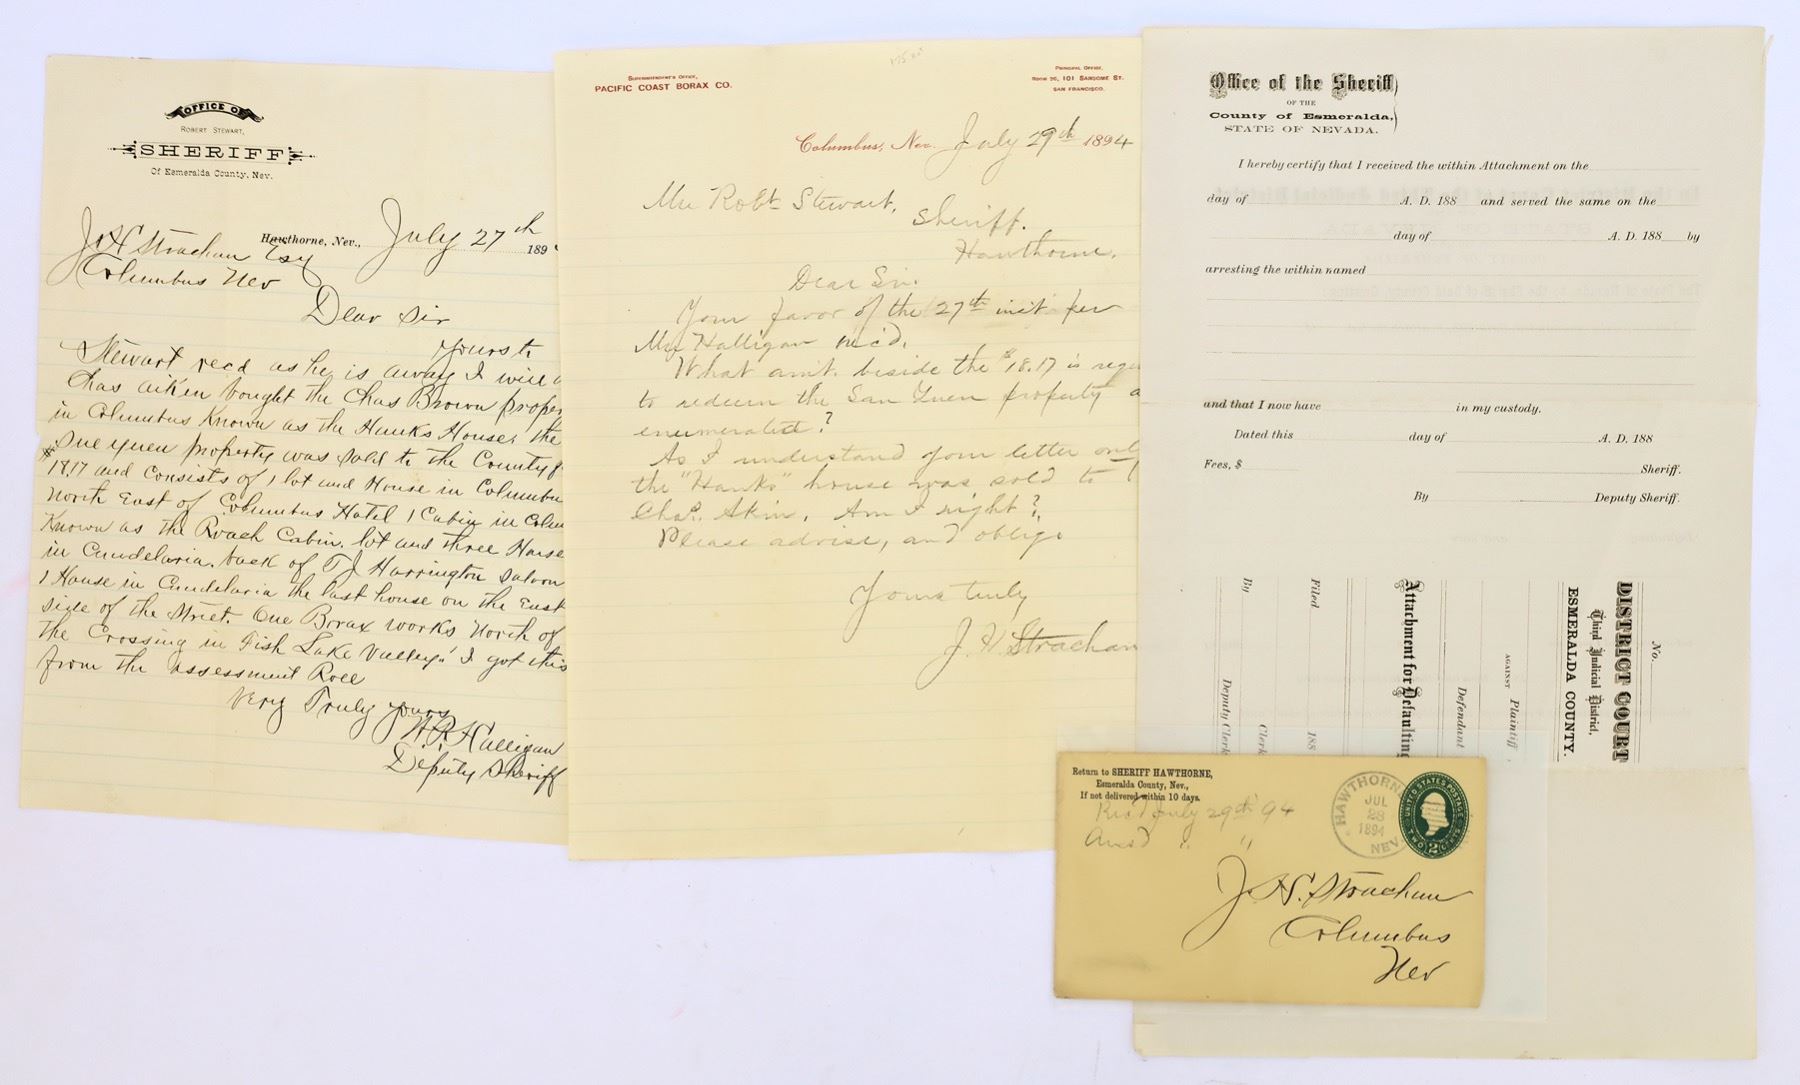 OFFICE OF
ROBERT STEWART,
SHERIFF
Of Esmeralda County, Nev.
Hawthorne, Nev., July 27th 189
J. H. Strachan Esq
Columbus Nev
Dear Sir
Yours to
Stewart recd as he is away I will
Chas Aiken bought the Chas Brown proper
in Columbus Known as the Hanks House, the
Sue Yuen property was sold to the County f
$18.17 and consists of 1 lot and House in Columbu
North East of Columbus Hotel 1 Cabin in Colum
Known as the Roach Cabin. lot and three House
in Candelaria, back of T J Harrington Saloon
1 House in Candelaria the last house on the East
side of the Street. One Borax works North of
the Crossing in Fish Lake Valley." I got this
from the assessment Roll
Very Truly yours
Halligan
Deputy Sheriff
175.00
SUPERINTENDENT'S OFFICE,
PACIFIC COAST BORAX CO.
PRINCIPAL OFFICE,
ROOM 26, 101 SANSOME ST.
SAN FRANCISCO.
Columbus, Nev. July 29th 1894
Mr Robt Stewart,
Sheriff.
Hawthorne.
Dear Sir.
Your favor of the 27th inst. per
Mr Halligan rec'd.
What amt. beside the $18.17 is requ
to redeem the San Yuen property a
enumerated?
As I understand your letter only
the "Hanks" house was sold to
Chas. Akin. Am I right?
Please advise, and oblige
Yours truly
J. H. Strachan
Office of the Sheriff
OF THE
County of Esmeralda,
STATE OF NEVADA.
I hereby certify that I received the within Attachment on the
day of A. D. 188 and served the same on the
day of A. D. 188 by
arresting the within named
and that I now have in my custody.
Dated this day of A. D. 188
Fees, $ Sheriff.
By Deputy Sheriff.
No.
DISTRICT COURT
Third Judicial District,
ESMERALDA COUNTY.
Plaintiff
AGAINST
Defendant
Attachment for Defaulting
Filed 188
Clerk
By Deputy Clerk
Return to SHERIFF HAWTHORNE,
Esmeralda County, Nev.,
If not delivered within 10 days.
Rec'd July 29th 94
Ans'd " "
HAWTHORNE
JUL
28
1894
NEV.
UNITED STATES POSTAGE
TWO 2 CENTS
J. H. Strachan
Columbus
Nev